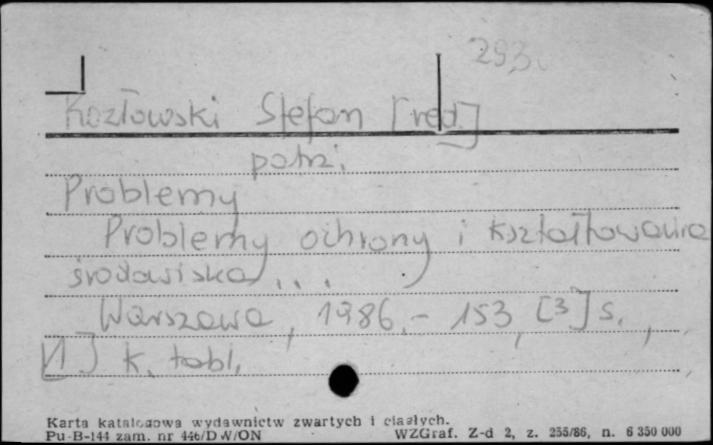 293
Kozłowski Stefan [red.]
patrz.
Problemy
Problemy ochrony i kształtowania
środowiska...
Warszawa, 1986.- 153, [3] s.,
[1] k. tabl.
Karta katalogowa wydawnictw zwartych i ciągłych.
Pu-B-144 zam. nr 446/DW/ON WZGraf. Z-d 2, z. 255/86, n. 6 350 000